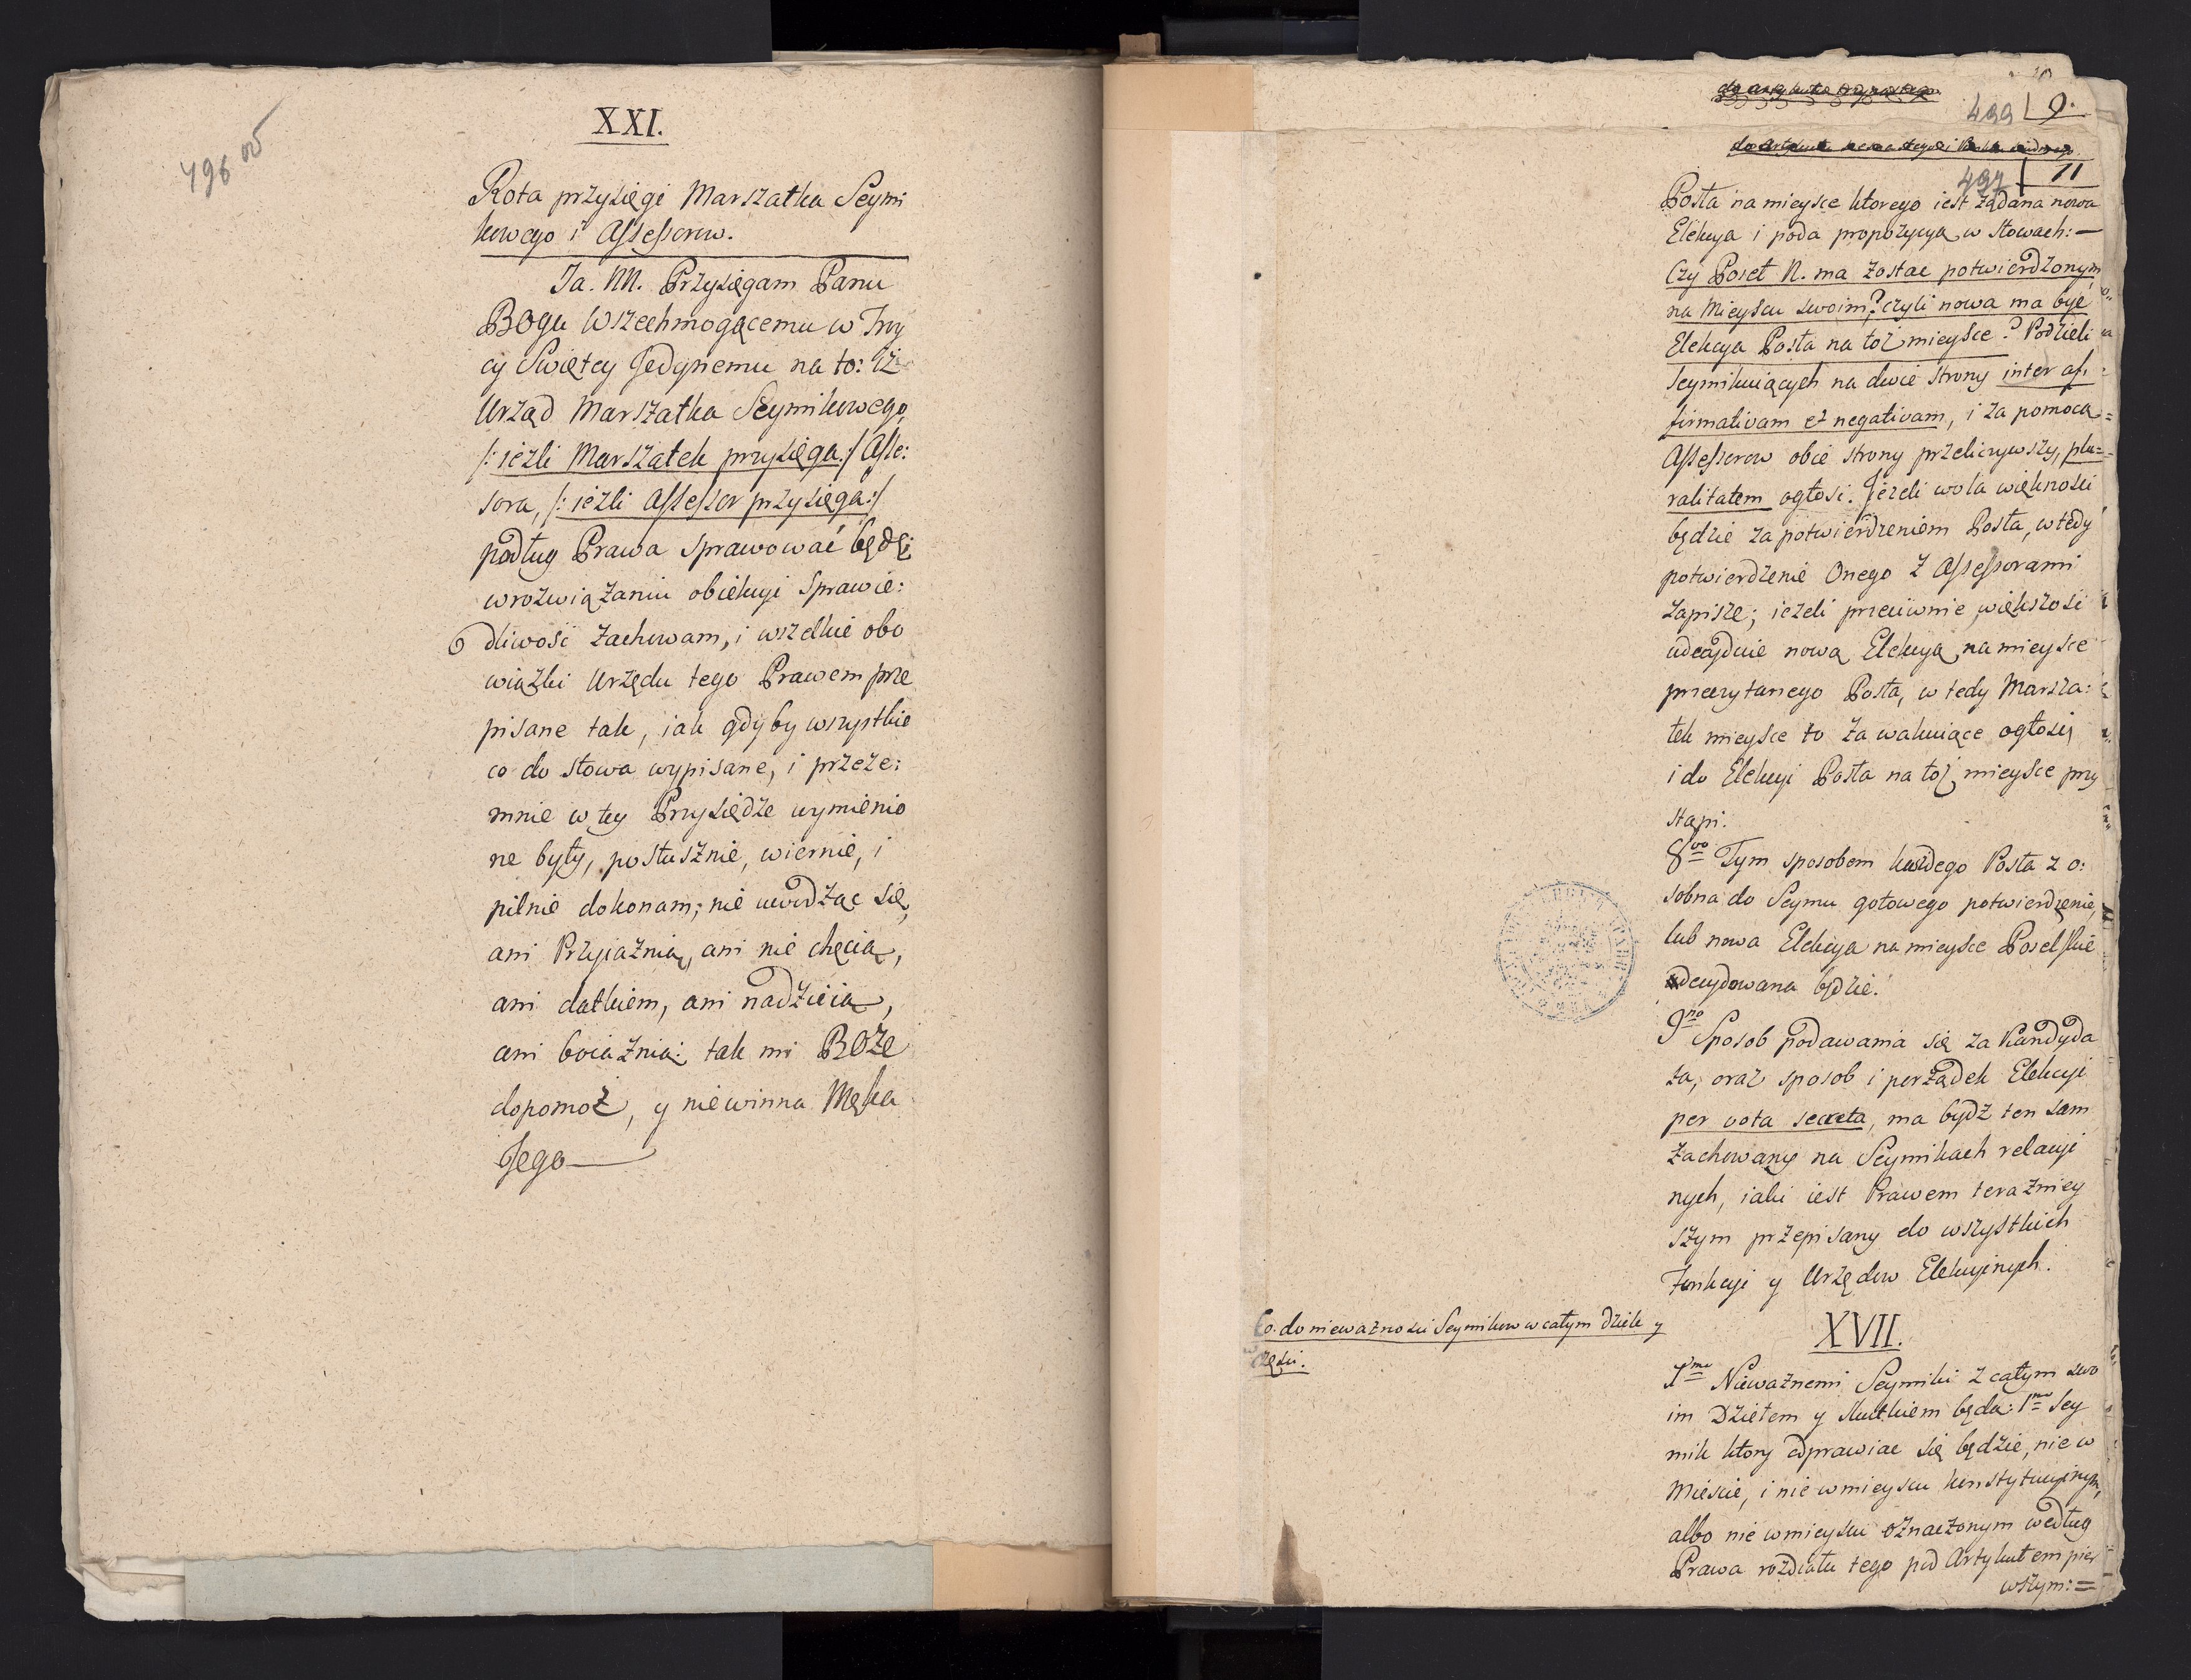 496 об
XXI.
Rota przysięgi Marszałka Seymi
kowego i Assessorow.
Ja. NN. Przysięgam Panu
Bogu Wszechmogącemu w Troy
cy Swiętey Jedynemu na to: iż
Urząd Marszałka Seymikowego,
/: ieżli Marszałek przysięga:/ Asse:
sora, /: ieżli Assessor przysięga:/
podług Prawa sprawować będę;
w rozwiązaniu obiekcyi sprawie:
dliwość zachowam, i wszelkie obo
wiązki Urzędu tego Prawem prze
pisane tak, iak gdyby wszystkie
co do słowa wypisane, i przeze:
mnie w tey Przysiędze wymienio
ne były, posłusznie, wiernie, i
pilnie dokonam; nie uwodząc się,
ani Przyiaźnią, ani nie chęcią,
ani datkiem, ani nadzieią,
ani boiaźnią: tak mi BOże
dopomoż, y niewinna Męka
Jego
499 | 9.
497 | 11
Posła na mieysce ktorego iest żądana nowa
Elekcya i poda propozycyą w słowach: —
Czy Poseł N. ma zostac potwierdzonym
na Mieyscu swoim? czyli nowa ma byc
Elekcya Posła na toż mieysce? Podzieli
seymikuiących na dwie strony inter af:
firmativam et negativam, i za pomocą =
Assessorow obie strony przeliczywszy, plu=
ralitatem ogłosi. Jeżeli wola większości
będzie za potwierdzeniem Posła, wtedy
potwierdzenie Onego z Assessorami
zapisze; ieżeli przeciwnie, większość
udecyduie nową Elekcyą na mieysce
przeczytanego Posła, w tedy Marsza:
łek mieysce to za wakuiące ogłosi,
i do Elekcyi Posła na toż mieysce przy
stąpi.
8vo Tym sposobem każdego Posła z o:
sobna do Seymu gotowego potwierdzenie,
lub nowa Elekcya na mieysce Poselskie
decydowana będzie.
9no Sposob podawania się za Kandyda
ta, oraz sposob i porządek Elekcyi
per vota secreta, ma bydź ten sam
zachowany na Seymikach relacyi
nych, iaki iest Prawem teraźniey
szym przepisany do wszystkich
Funkcyi y Urzędow Elekcyinych.
Co do nieważności Seymikow w całym dziele y
w części.
XVII.
1mo Nieważnemi Seymiki z całym swo
im Dziełem y skutkiem będą: 1mo Sey
mik ktory odprawiac się będzie, nie w
Mieście, i nie w mieyscu konstytucyinym,
albo nie w mieyscu oznaczonym według
Prawa rozdziału tego pod Artykułem pier
wszym: =